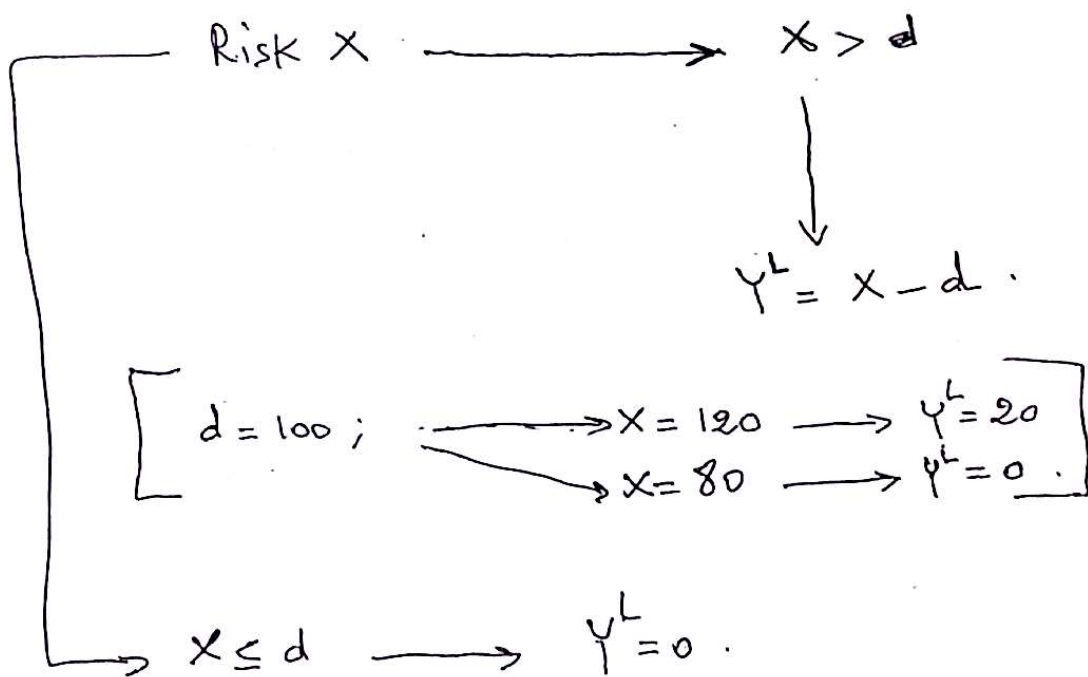 Risk X → X > d
↓
Y^L = X - d .
[ d = 100 ; → X = 120 → Y^L = 20
→ X = 80 → Y^L = 0 . ]
→ X ≤ d → Y^L = 0 .